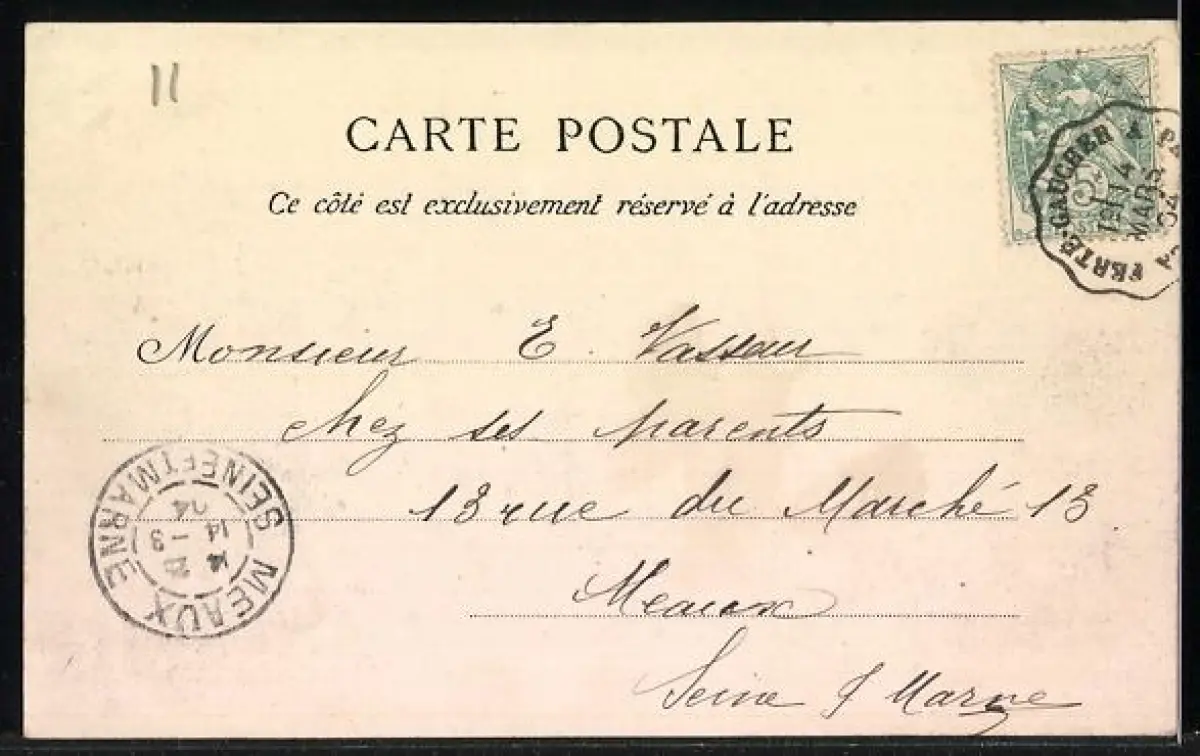 11
CARTE POSTALE
Ce côté est exclusivement réservé à l'adresse
FERTÉ-GAUCHER
14
MARS
04
Monsieur E. Vasseur
chez ses parents
13 rue du Marché 13
Meaux
Seine & Marne
MEAUX
SEINE ET MARNE
14 -3
04